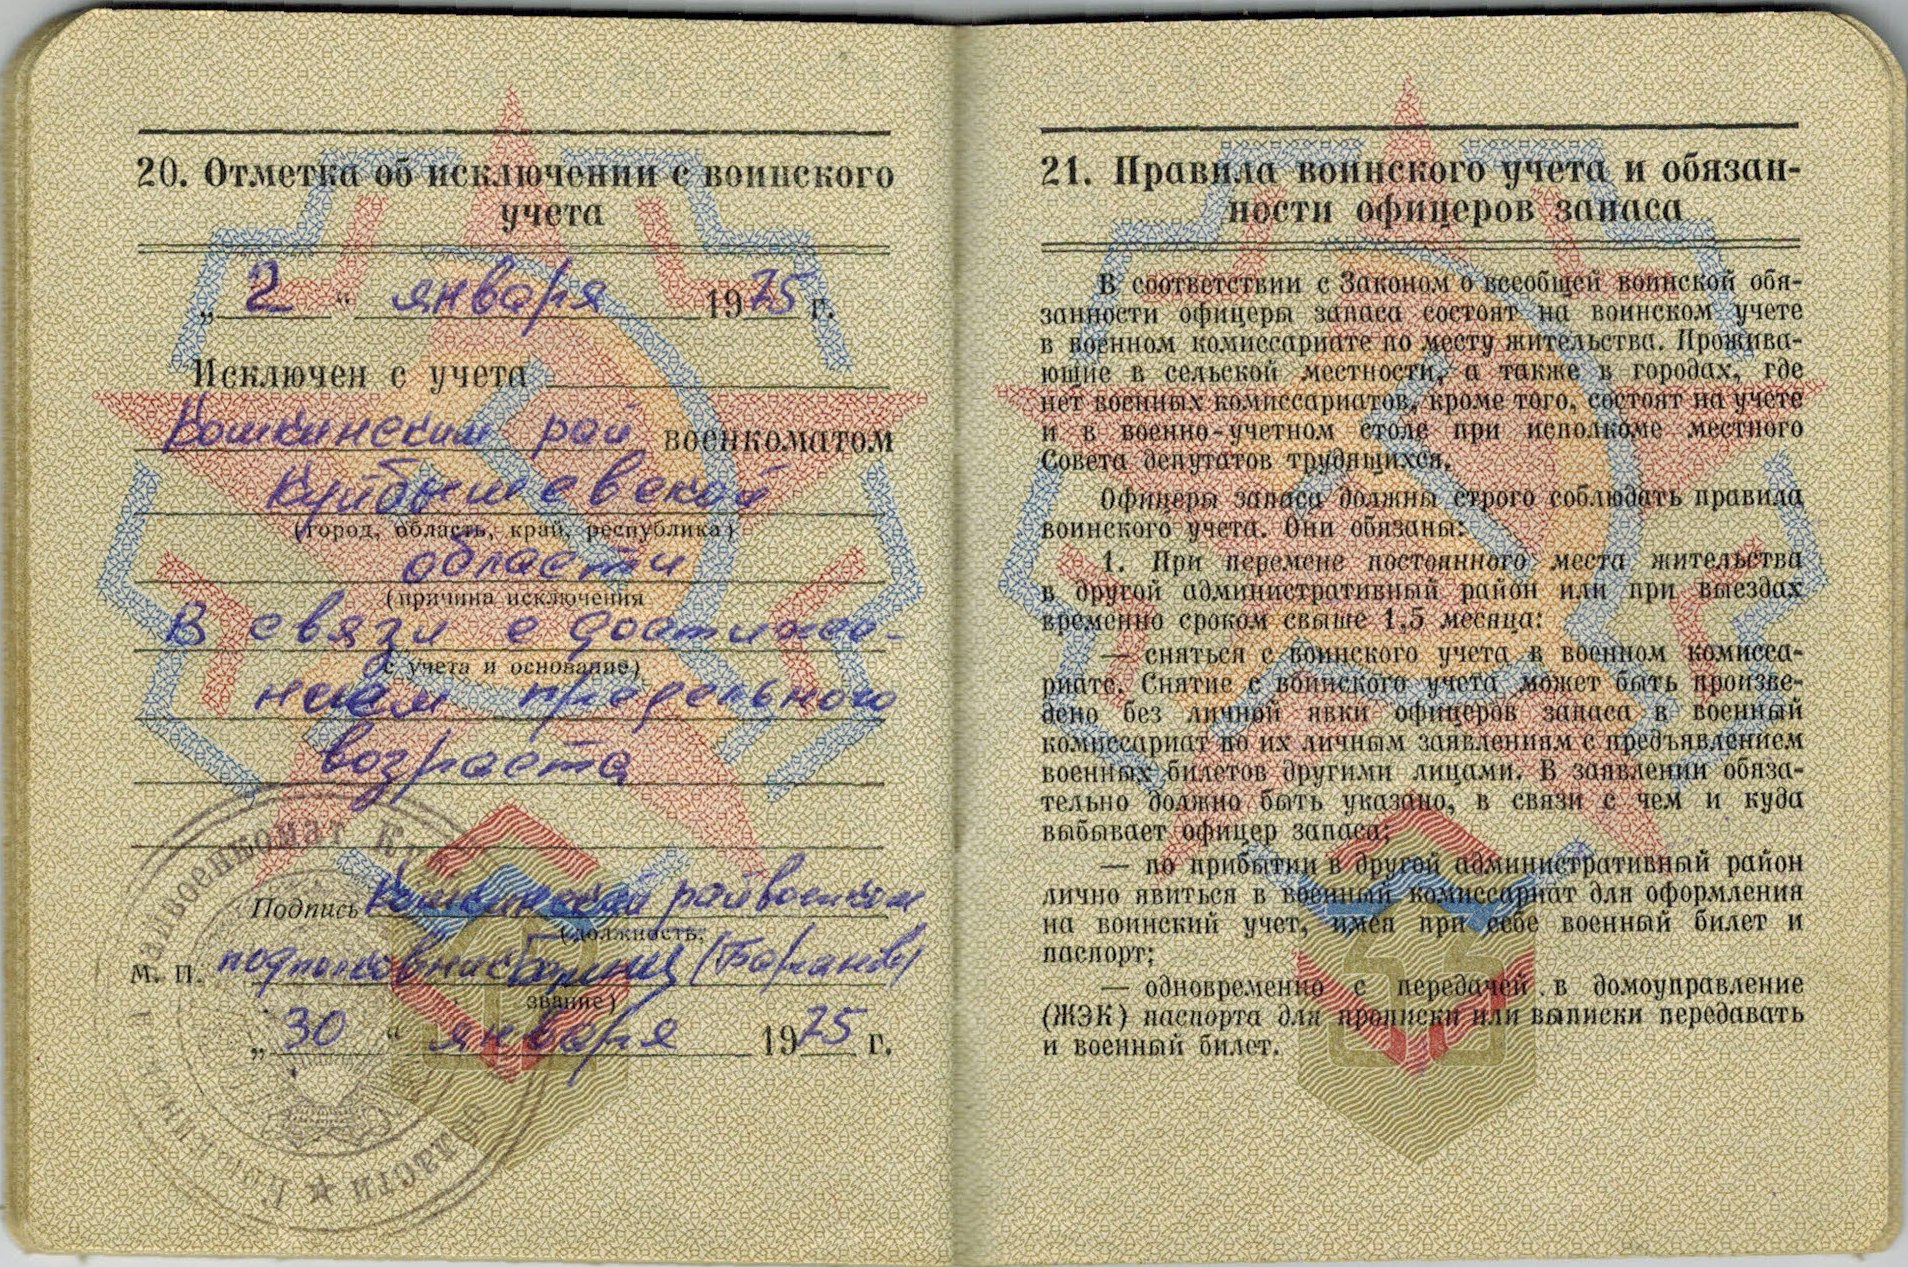 20. Отметка об исключении с воинского
учета
„ 2 “ января 1975 г.
Исключен с учета
Кошкинским рай военкоматом
Куйбышевской
(город, область, край, республика)
области
(причина исключения
В связи с достиже-
с учета и основание)
нием предельного
возраста
Подпись Кошкинский райвоенком
(должность,
М. П. подполковник (Баранов)
звание)
„ 30 “ января 1975 г.
Райвоенкомат
области ★ Кошкинский
21. Правила воинского учета и обязан-
ности офицеров запаса
В соответствии с Законом о всеобщей воинской обя-
занности офицеры запаса состоят на воинском учете
в военном комиссариате по месту жительства. Прожива-
ющие в сельской местности, а также в городах, где
нет военных комиссариатов, кроме того, состоят на учете
и в военно-учетном столе при исполкоме местного
Совета депутатов трудящихся.
Офицеры запаса должны строго соблюдать правила
воинского учета. Они обязаны:
1. При перемене постоянного места жительства
в другой административный район или при выездах
временно сроком свыше 1,5 месяца:
— сняться с воинского учета в военном комисса-
риате. Снятие с воинского учета может быть произве-
дено без личной явки офицеров запаса в военный
комиссариат по их личным заявлениям с предъявлением
военных билетов другими лицами. В заявлении обяза-
тельно должно быть указано, в связи с чем и куда
выбывает офицер запаса;
— по прибытии в другой административный район
лично явиться в военный комиссариат для оформления
на воинский учет, имея при себе военный билет и
паспорт;
— одновременно с передачей в домоуправление
(ЖЭК) паспорта для прописки или выписки передавать
и военный билет.